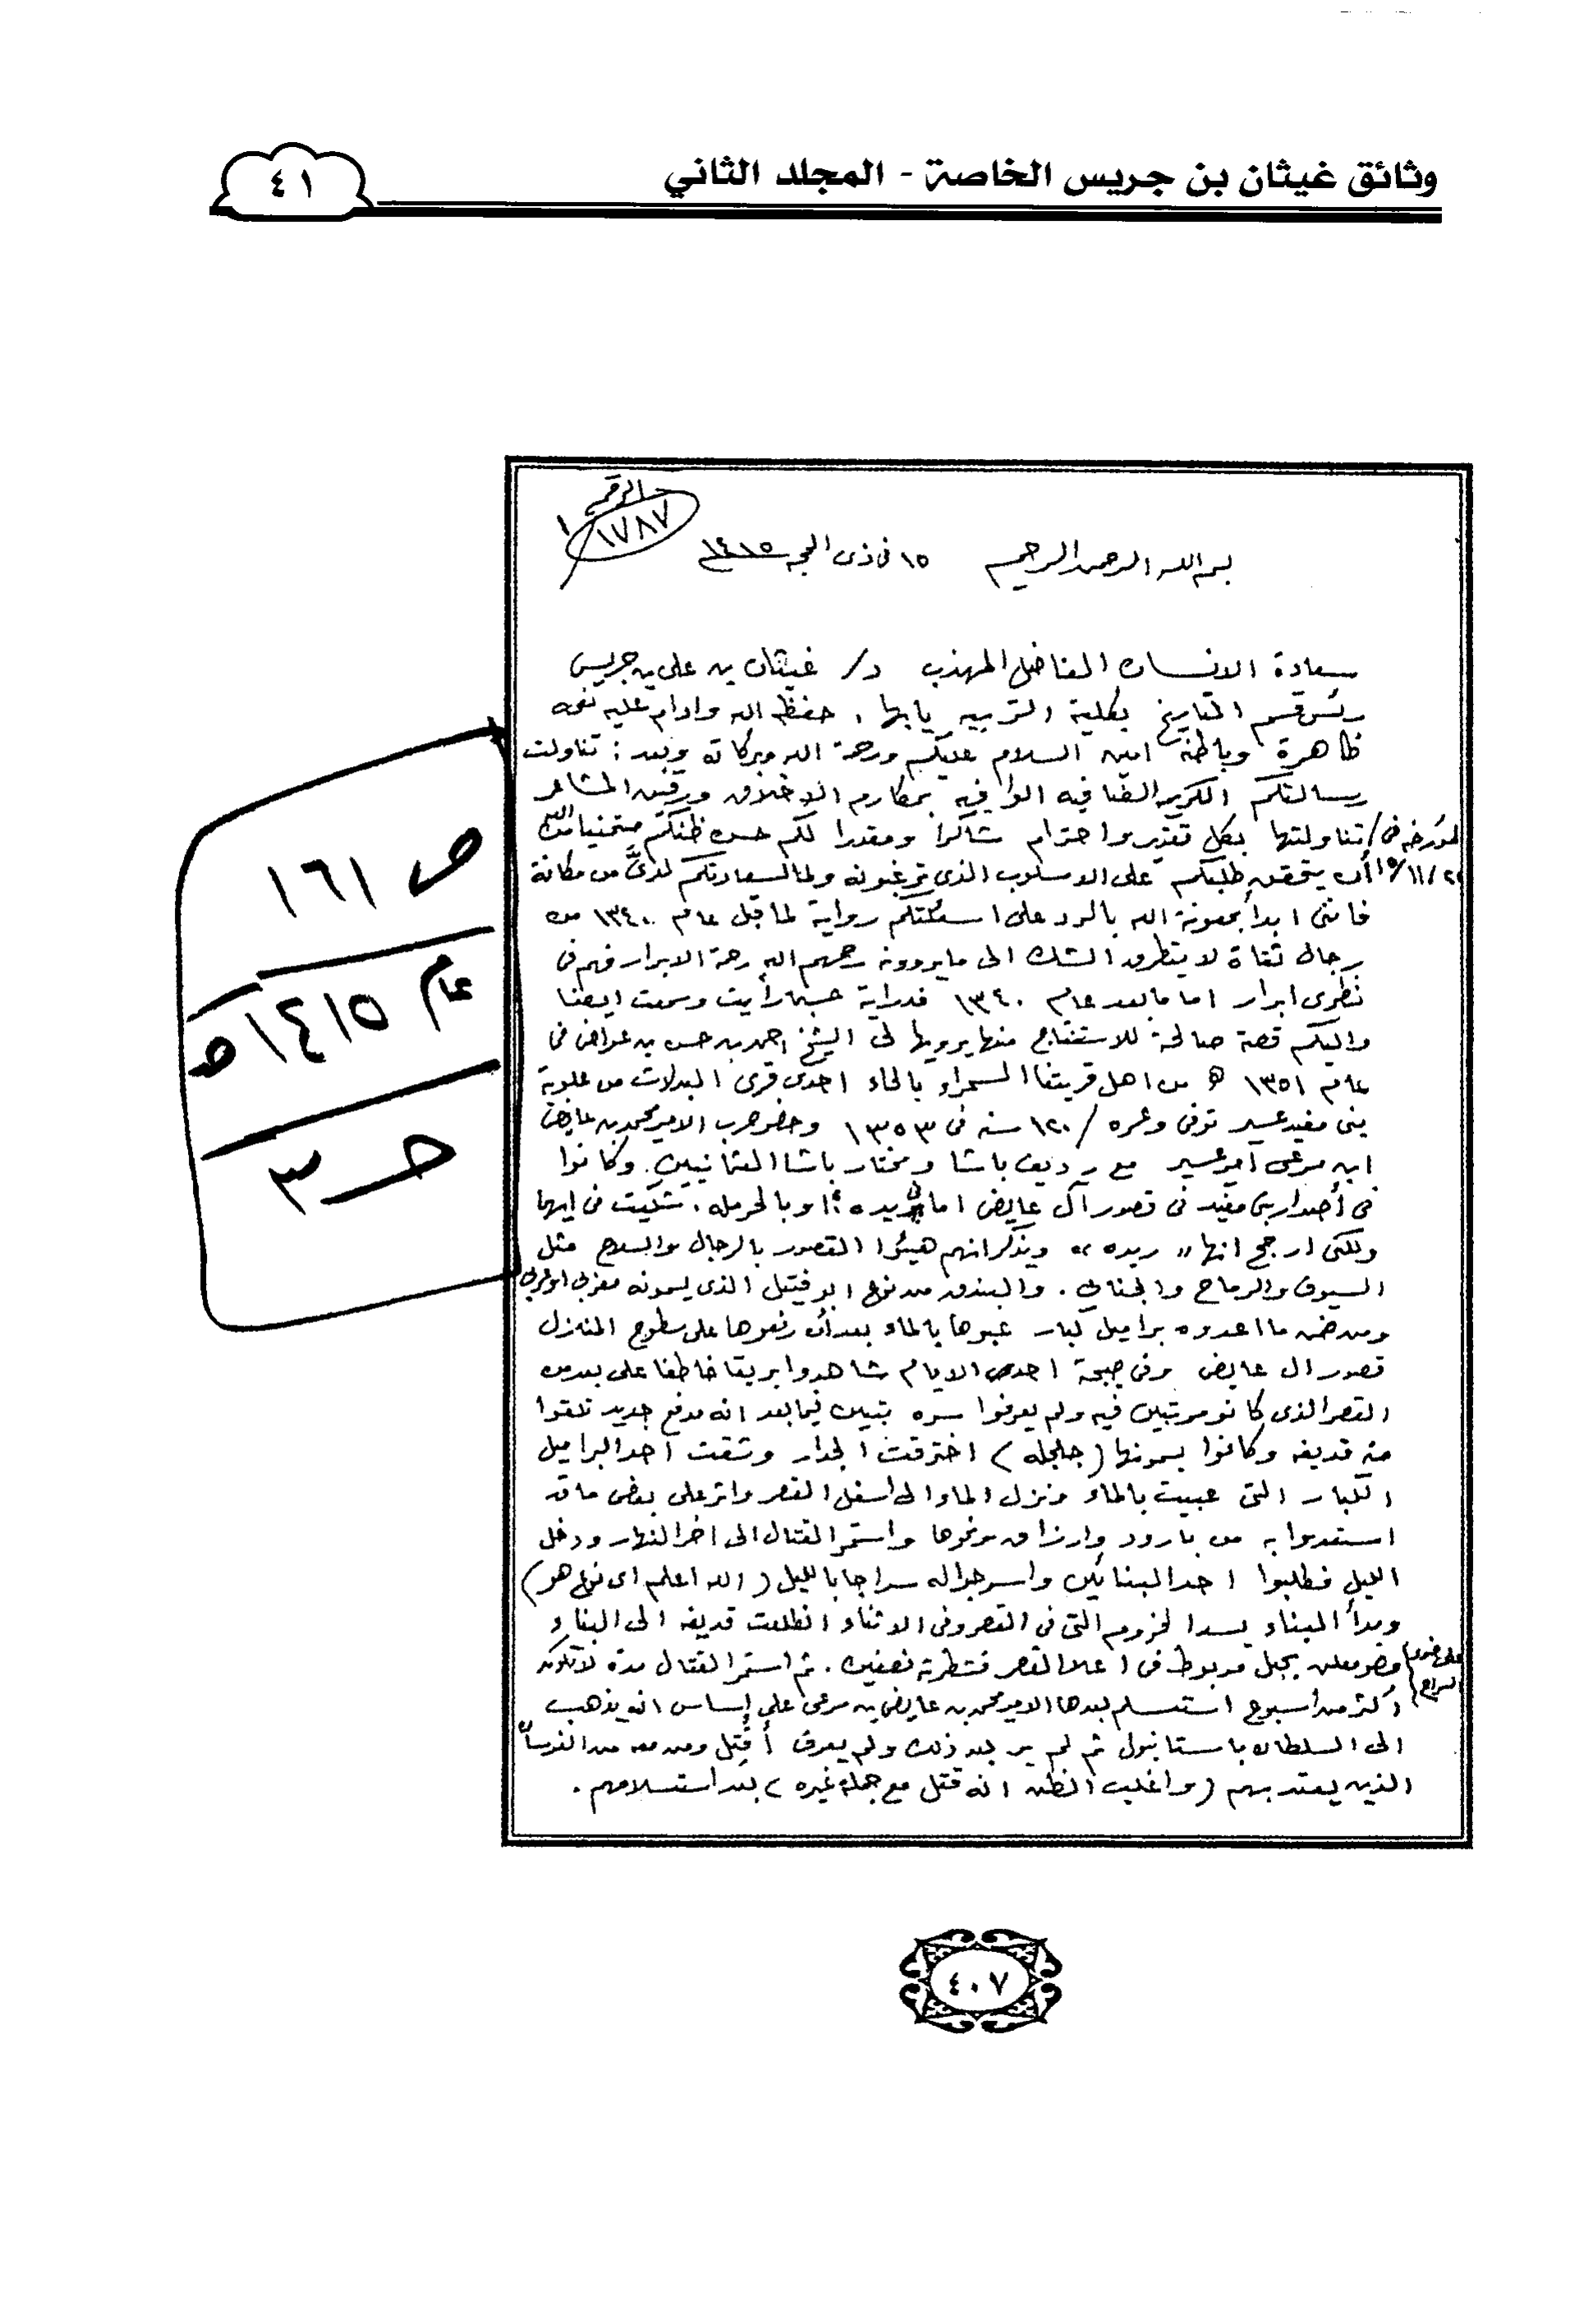 وثائق غيثان بن جريس الخاصة - المجلد الثاني
٤١
الرقم
١٧٨٧
١
بسم الله الرحمن الرحيم ١٥ في ذي الحجه ١٤١٥
سعادة الانسان الفاضل المهذب د/ غيثان بن علي بن جريس
رئس قسم التاريخ بكلية التربيه بابها، حفظه الله وادام عليه نعمه
ظاهرة وباطنة امين السلام عليكم ورحمة الله وبركاته وبعد: تناولت
رسالتكم الكريمه الضافيه الوافيه بمكارم الاخلاق ورقيق المشاعر
المؤرخه في/ تناولتها بكل تقدير واحترام شاكرا ومقدرا لكم حسن ظنكم متمنيا من الله
١٥/١١/ أن يتحقق طلبكم على الاسلوب الذي ترغبونه ولما لسعادتكم لديَّ من مكانة
فانني ابدأ بمعونة الله بالرد على اسئلتكم رواية لما قبل عام ١٣٤٠ من
رجال ثقاة لا يتطرق الشك الى ما يروونه رحمهم الله رحمة الابرار فهم في
نظري ابرار اما ما بعد عام ١٣٤٠ فدراية حسبما رأيت وسمعت ايضا
واليكم قصة صالحة للاستنتاج منها يرويها لي الشيخ احمد بن حسن بن عواض في
عام ١٣٥١ هـ من اهل قريتنا السمراء بالحاء احدى قرى البدلات من علوية
بني مغيد عسير توفي وعمره / ١٢٠ سنه في ١٣٥٣ وحضر حرب الامير محمد بن عايض
ابن مرعي امير عسير مع رديف باشا ومختار باشا العثمانيين. وكانوا
في أصدار بني مغيد في قصور آل عايض اما في ريده او بالحرمله. شكيت في ايهما
ولكني ارجح انها " ريده " ويذكر انهم هيئوا القصور بالرجال والسلاح مثل
السيوف والرماح والجنابي. والبندق من نوع ابو فيتل الذي يسمونه مغربي او عربي
ومن ضمن ما اعدوه براميل كبار عبوها بالماء بعد أن رفعوها على سطوح المنازل
قصور ال عايض وفي صبحة احدى الايام شاهدوا بريقا خاطفا على بعد من
القصر الذي كانو مرتبين فيه ولم يعرفوا سره تبين فيما بعد انه مدفع جديد تلقوا
منه قديفه وكانوا يسمونها (جلجله) اخترقت الجدار وشقت احد البراميل
الكبار التي عبيت بالماء ونزل الماء الى اسفل القصر واثر على بعض ما قد
استعدوا به من بارود وارزاق ونحوها واستمر القتال الى اخر النهار ودخل
الليل فطلبوا احد البنائين واسرجوا له سراجا بالليل (الله اعلم اي نوع هو)
وبدأ البناء يسد الخزوم التي في القصر وفي الاثناء انطلقت قديفه الى البناء
على ضوء السراج
وهو معلق بحبل مربوط في اعلا القصر فشطرته نصفين. ثم استمر القتال مدة لا تكون
أكثر من أسبوع استسلم بعدها الامير محمد بن عايض بن مرعي على إساس انه يذهب
الى السلطان باستانبول ثم لم ير بعد ذلك ولم يعرف أقُتِل ومن معه من الفرسان
الذين يعتد بهم (واغلب الظن انه قتل مع جملة غيره) بعد استسلامهم.
ص ١٦١
عام ١٤١٥هـ
حـ ٣
٤٠٧